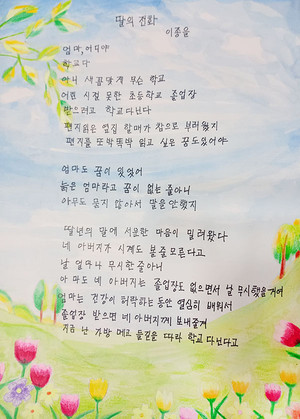 딸의 전화
이종을
엄마, 어디야
학교다
아니 새꼽맞게 무슨 학교
어린 시절 못한 초등학교 졸업장
받으려고 학교다닌다
편지읽은 옆집 할매가 참으로 부러웠지
편지를 또박똑박 읽고 싶은 꿈도있어야
엄마도 꿈이 있었어
늙은 엄마라고 꿈이 없는줄아니
아무도 묻지 않아서 말을안했지
딸년의 말에 서운한 마음이 밀려왔다
네 아버지가 시계도 볼줄모른다고
날 얼마나 무시한줄아니
아마도 네 아버지는 졸업장도 없으면서 날 무시했을거여
엄마는 건강이 허락하는동안 열심히 배워서
졸업장 받으면 네아버지께 보내줄겨
지금 난 가방 메고 들길을 따라 학교다닌다고